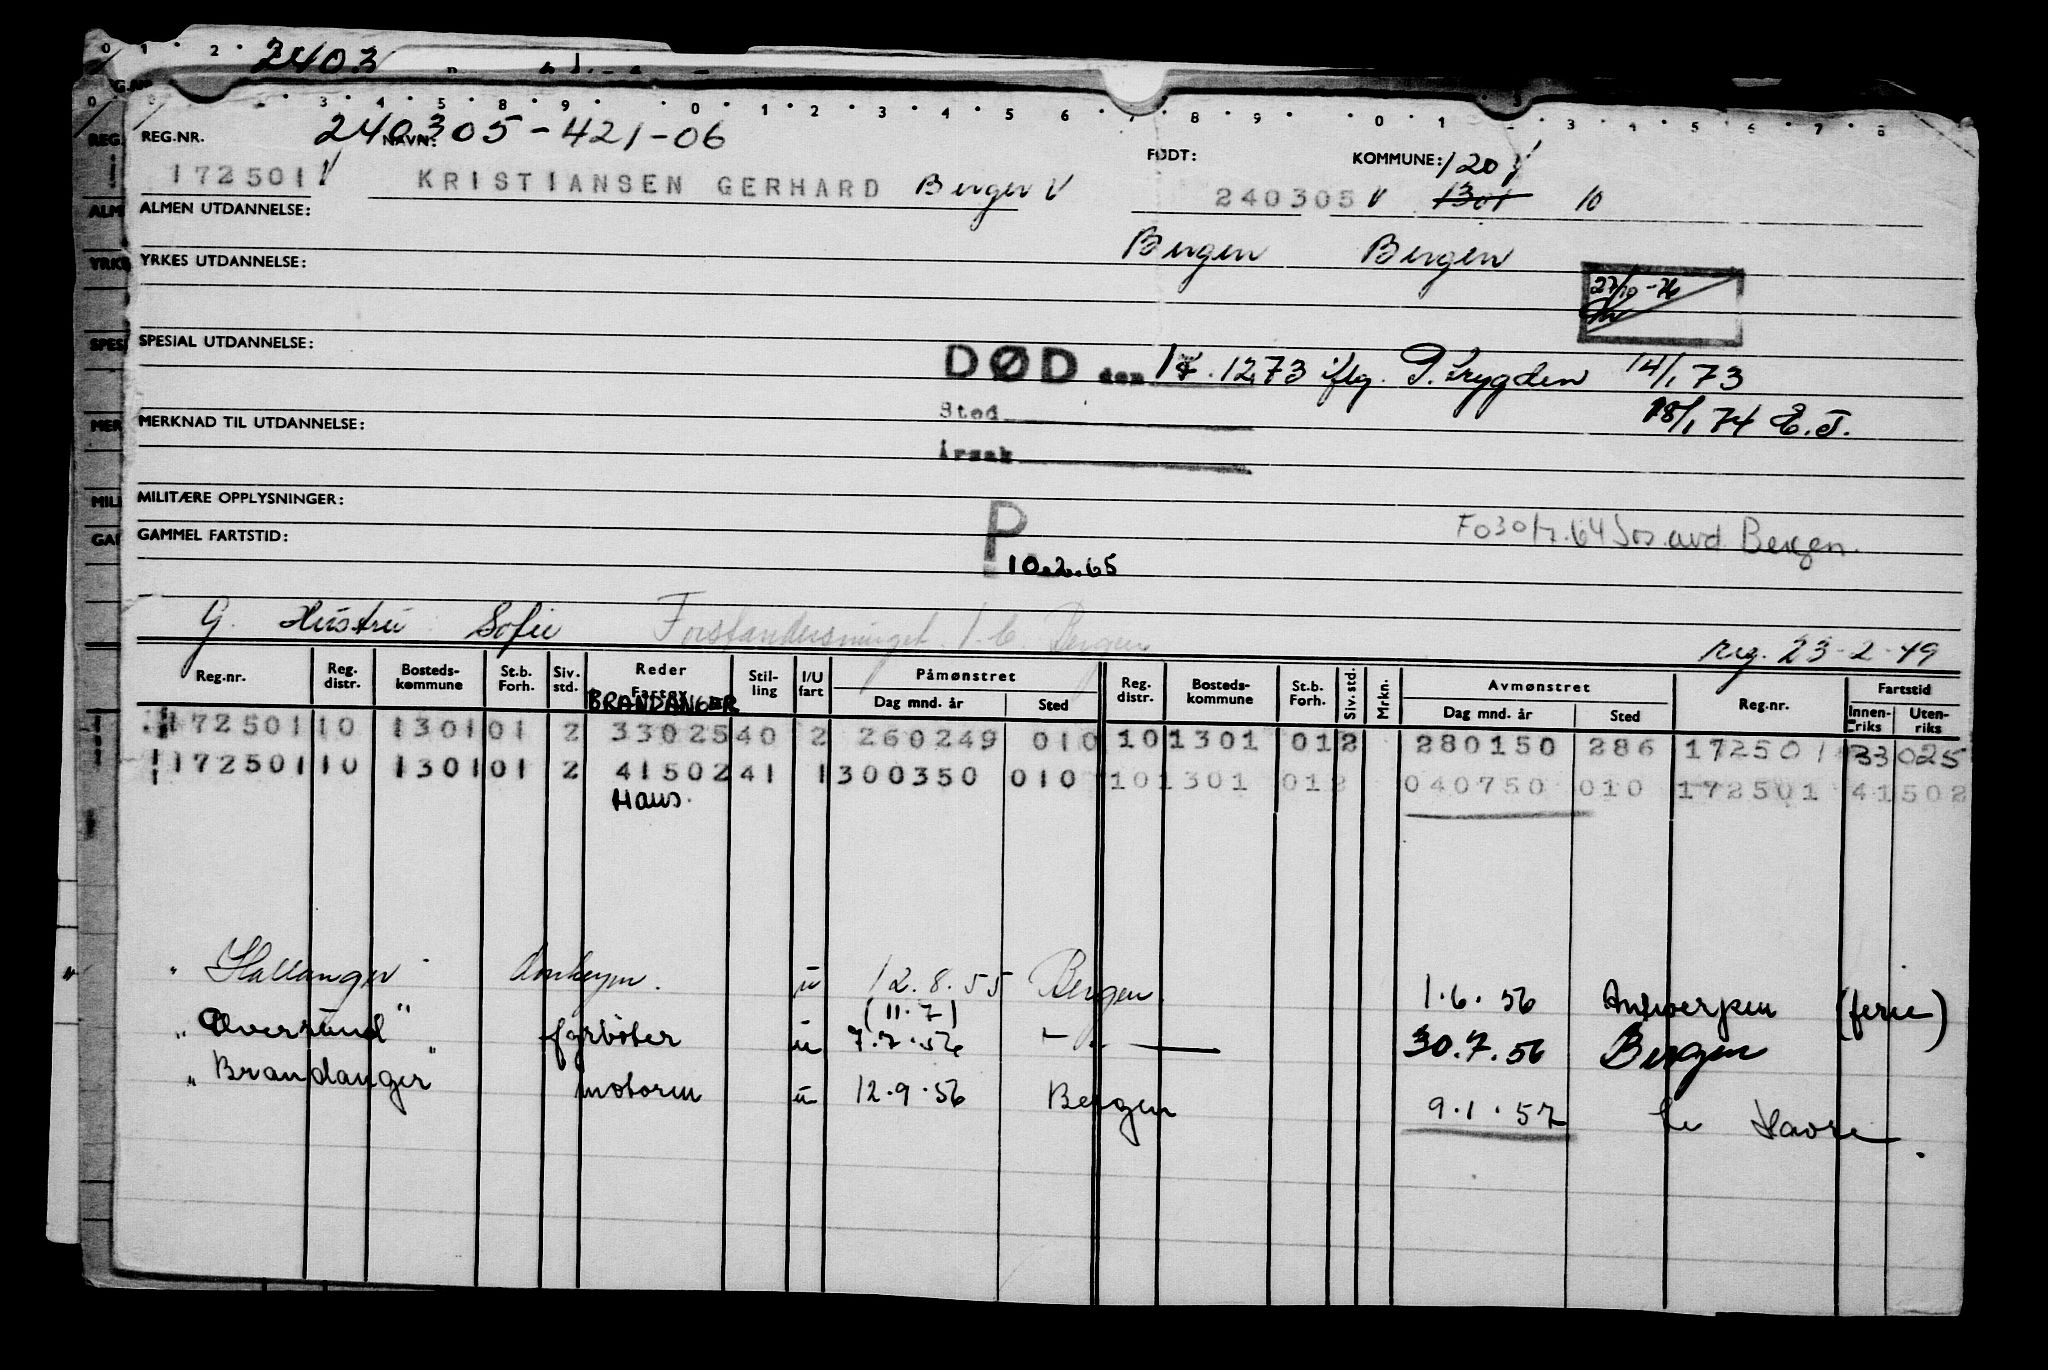 2403
240305-421-06
REG.NR. NAVN: FØDT: KOMMUNE: 1201
172501 V KRISTIANSEN GERHARD Berger V 240305 V 1301 10
ALMEN UTDANNELSE:
Bergen Bergen
YRKES UTDANNELSE:
27/10-76
SPESIAL UTDANNELSE:
DØD den 14.12.73 iflg. P. trygden 14/1 73
Sted
18/1 74 E.J.
MERKNAD TIL UTDANNELSE:
Årsak
MILITÆRE OPPLYSNINGER:
P
Fo 30/7.64 Sos.avd. Bergen.
GAMMEL FARTSTID:
10.2.65
G. Hustru Sofie
reg. 23-2-49
Reg.nr. Reg. distr. Bosteds-kommune St.b. Forh. Siv. std. Reder Fartøy Stil-ling I/U fart Påmønstret Dag mnd. år Sted Reg. distr. Bosteds-kommune St.b. Forh. Siv. std. Mrkn. Avmønstret Dag mnd. år Sted Reg.nr. Fartstid Innen-riks Uten-riks
BRANDANGER
172501 10 1301 01 2 33025 40 2 260249 010 10 1301 01 2 280150 286 172501 33 025
172501 10 1301 01 2 41502 41 1 300350 010 10 1301 01 2 040750 010 172501 41502
Haus.
" Hallanger " u 12.8.55 Bergen. 1.6.56 Antwerpen (ferie)
(11.7)
" fyrbøter u 7.7.56 — " — 30.7.56 Bergen
" Brandanger " motorm u 12.9.56 Bergen 9.1.57 Le Havre.